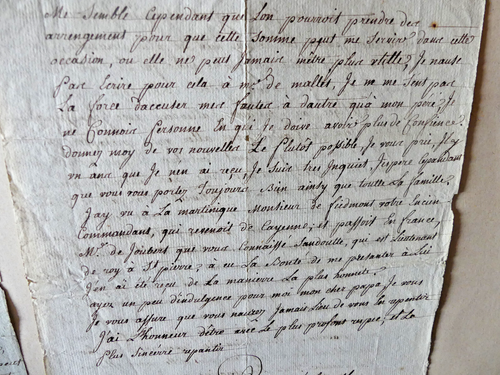 me semble cependant que lon pourroit prendre des
arrengement pour que cette somme put me servire dans cette
occasion, ou elle ne peut jamais metre plus utille; je nause
pas Ecrire pour cela à mr. de mallet, je ne me sent pas
la force daccuser mes fautes à dautre qua mon pere; je
ne connois personne En qui je doive avoir plus de confience
donnez moy de vos nouvelles le plutôt possible, je vous prie, il y a
un ans que je nen ai reçu, je suis tres inquiet, jespere cependant
que vous vous portez toujours bien ainsy que toutte la famille,
jay vu à La martinique Monsieur de fiedmont votre encien
Commandant, qui revenoit de Cayenne, et passoit En france,
Mr. de Joubert que vous connaisse sandoutte, qui est lieutenent
de roy à St pierre, à eu la bonté de me presenter à lui
jen ai été reçu de la manierre la plus honnete.
ayez un peu dindulgence pour moi mon cher papa je vous
je vous assure que vous naurez jamais lieu de vous en repentir
j'ai l'honneur dêtre avec le plus profont respec, et la
plus sincerre repantir